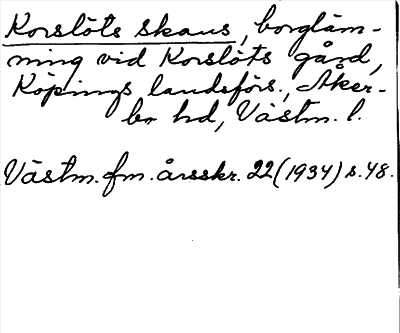 Korslöts skans, borgläm-
ning vid Korslöts gård,
Köpings landsförs., Åker-
bo hd, Västm. l.
Västm. fm. årsskr. 22 (1934) s. 48.